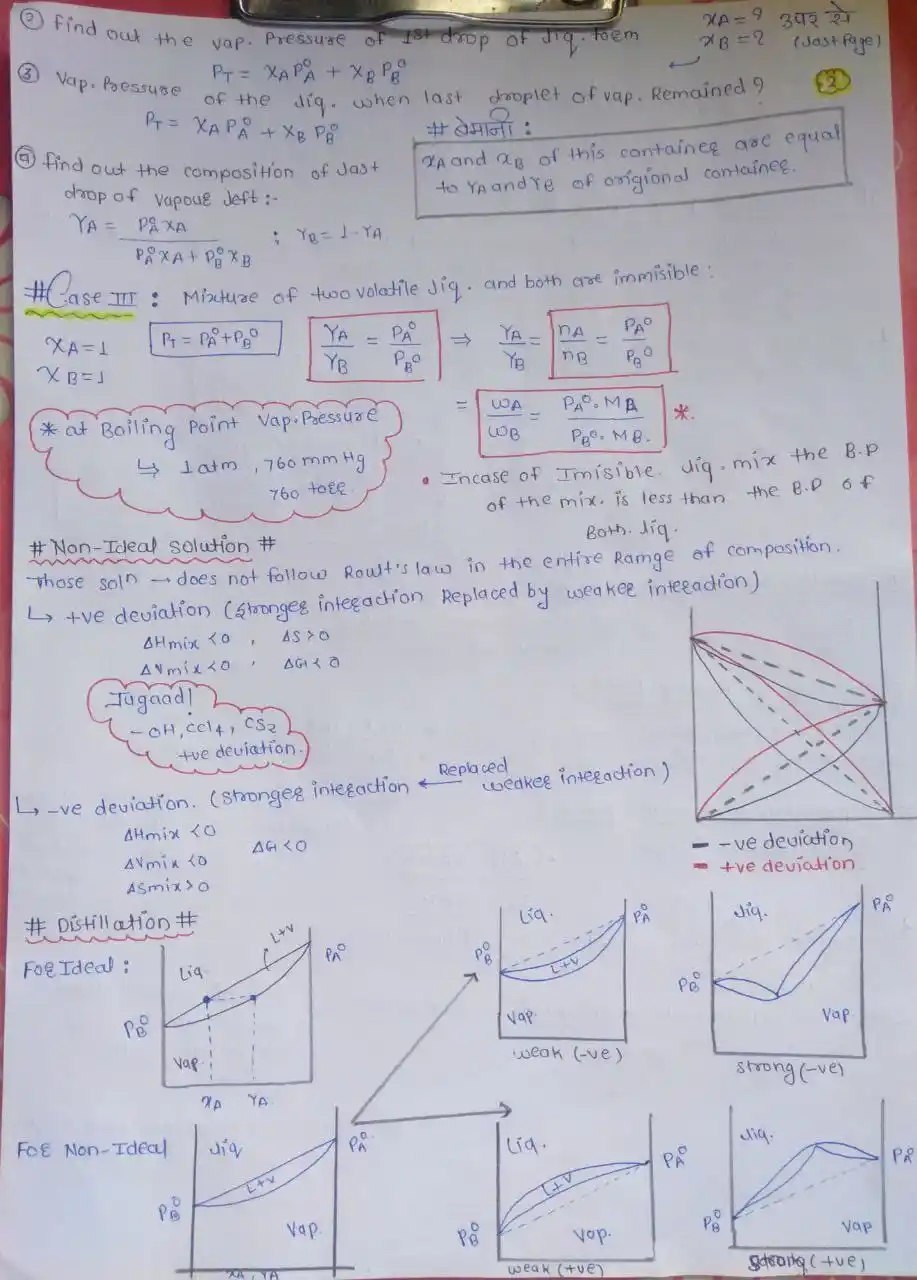 ② find out the vap. Pressure of 1st drop of liq. form
xA = ?
xB = ?
उपर से
(last page)
PT = XA PA° + XB PB°
③ Vap. Pressure of the liq. when last droplet of vap. Remained ?
③
PT = XA PA° + XB PB°
# बेमानी :
xA and xB of this container are equal
to YA and YB of origional container.
④ find out the composition of last
drop of vapour left :-
YA = PA° XA / PA° XA + PB° XB ; YB = 1 - YA
# Case III : Mixture of two volatile liq. and both are immisible :
XA = 1
XB = 1
PT = PA° + PB°
YA / YB = PA° / PB° ⇒ YA / YB = nA / nB = PA° / PB°
= WA / WB = PA° . MA / PB° . MB. *.
* at Boiling Point Vap. Pressure
↳ 1 atm , 760 mm Hg
760 torr.
• Incase of Imisible liq. mix the B.P
of the mix. is less than the B.P of
Both. liq.
# Non-Ideal Solution #
Those soln → does not follow Rowlt's law in the entire Ramge of composition.
↳ +ve deviation (stronger interaction Replaced by weaker interadion)
ΔHmix <0 , ΔS >0
ΔVmix <0 , ΔG < 0
Jugaad!
- OH, ccl4, CS2
+ve deviation.
↳ -ve deviation. (stronger interaction ← Replaced weaker interaction)
ΔHmix <0
ΔVmix <0 ΔG <0
ΔSmix >0
-ve deviation
+ve deviation
# Distillation #
For Ideal :
Liq
L+V
PA°
PB°
Vap.
xA YA
Liq.
PA°
PB°
L+V
Vap.
weak (-ve)
Liq.
PA°
PB°
Vap
strong (-ve)
For Non-Ideal
Liq
PA°
L+V
PB°
Vap.
xA, YA
Liq.
PA°
L+V
PB°
Vop.
weak (+ve)
Liq.
PA°
PB°
Vap
strong (+ve)